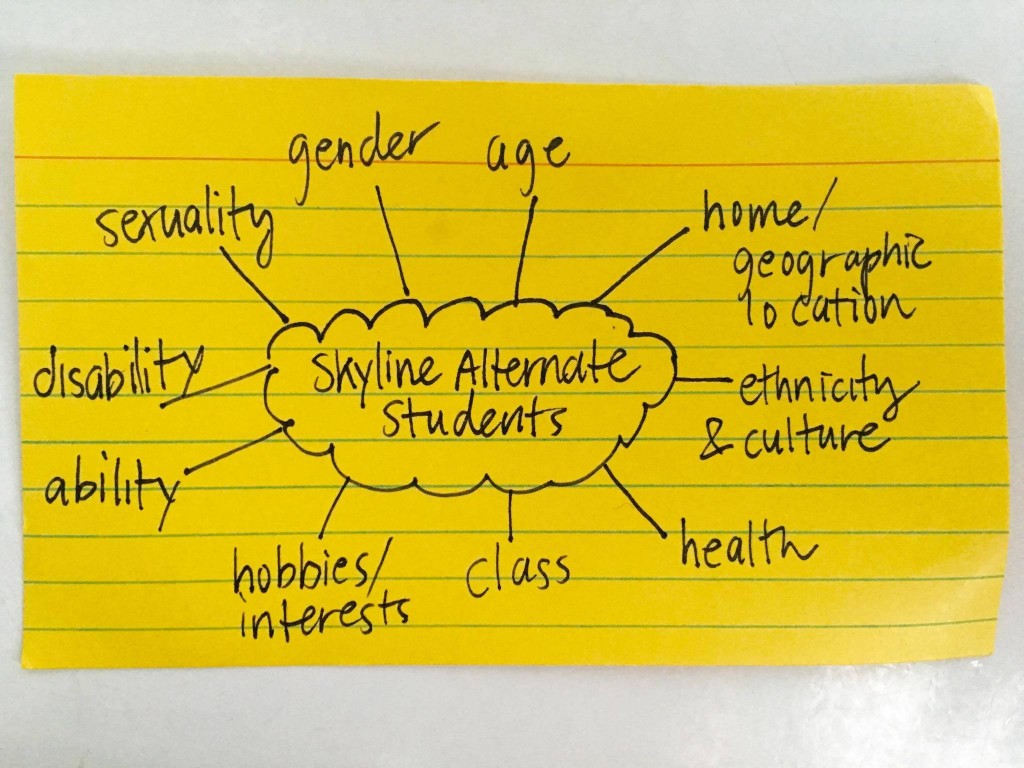 gender
age
sexuality
home/
geographic
location
disability
Skyline Alternate
Students
ethnicity
& culture
ability
health
hobbies/
interests
class